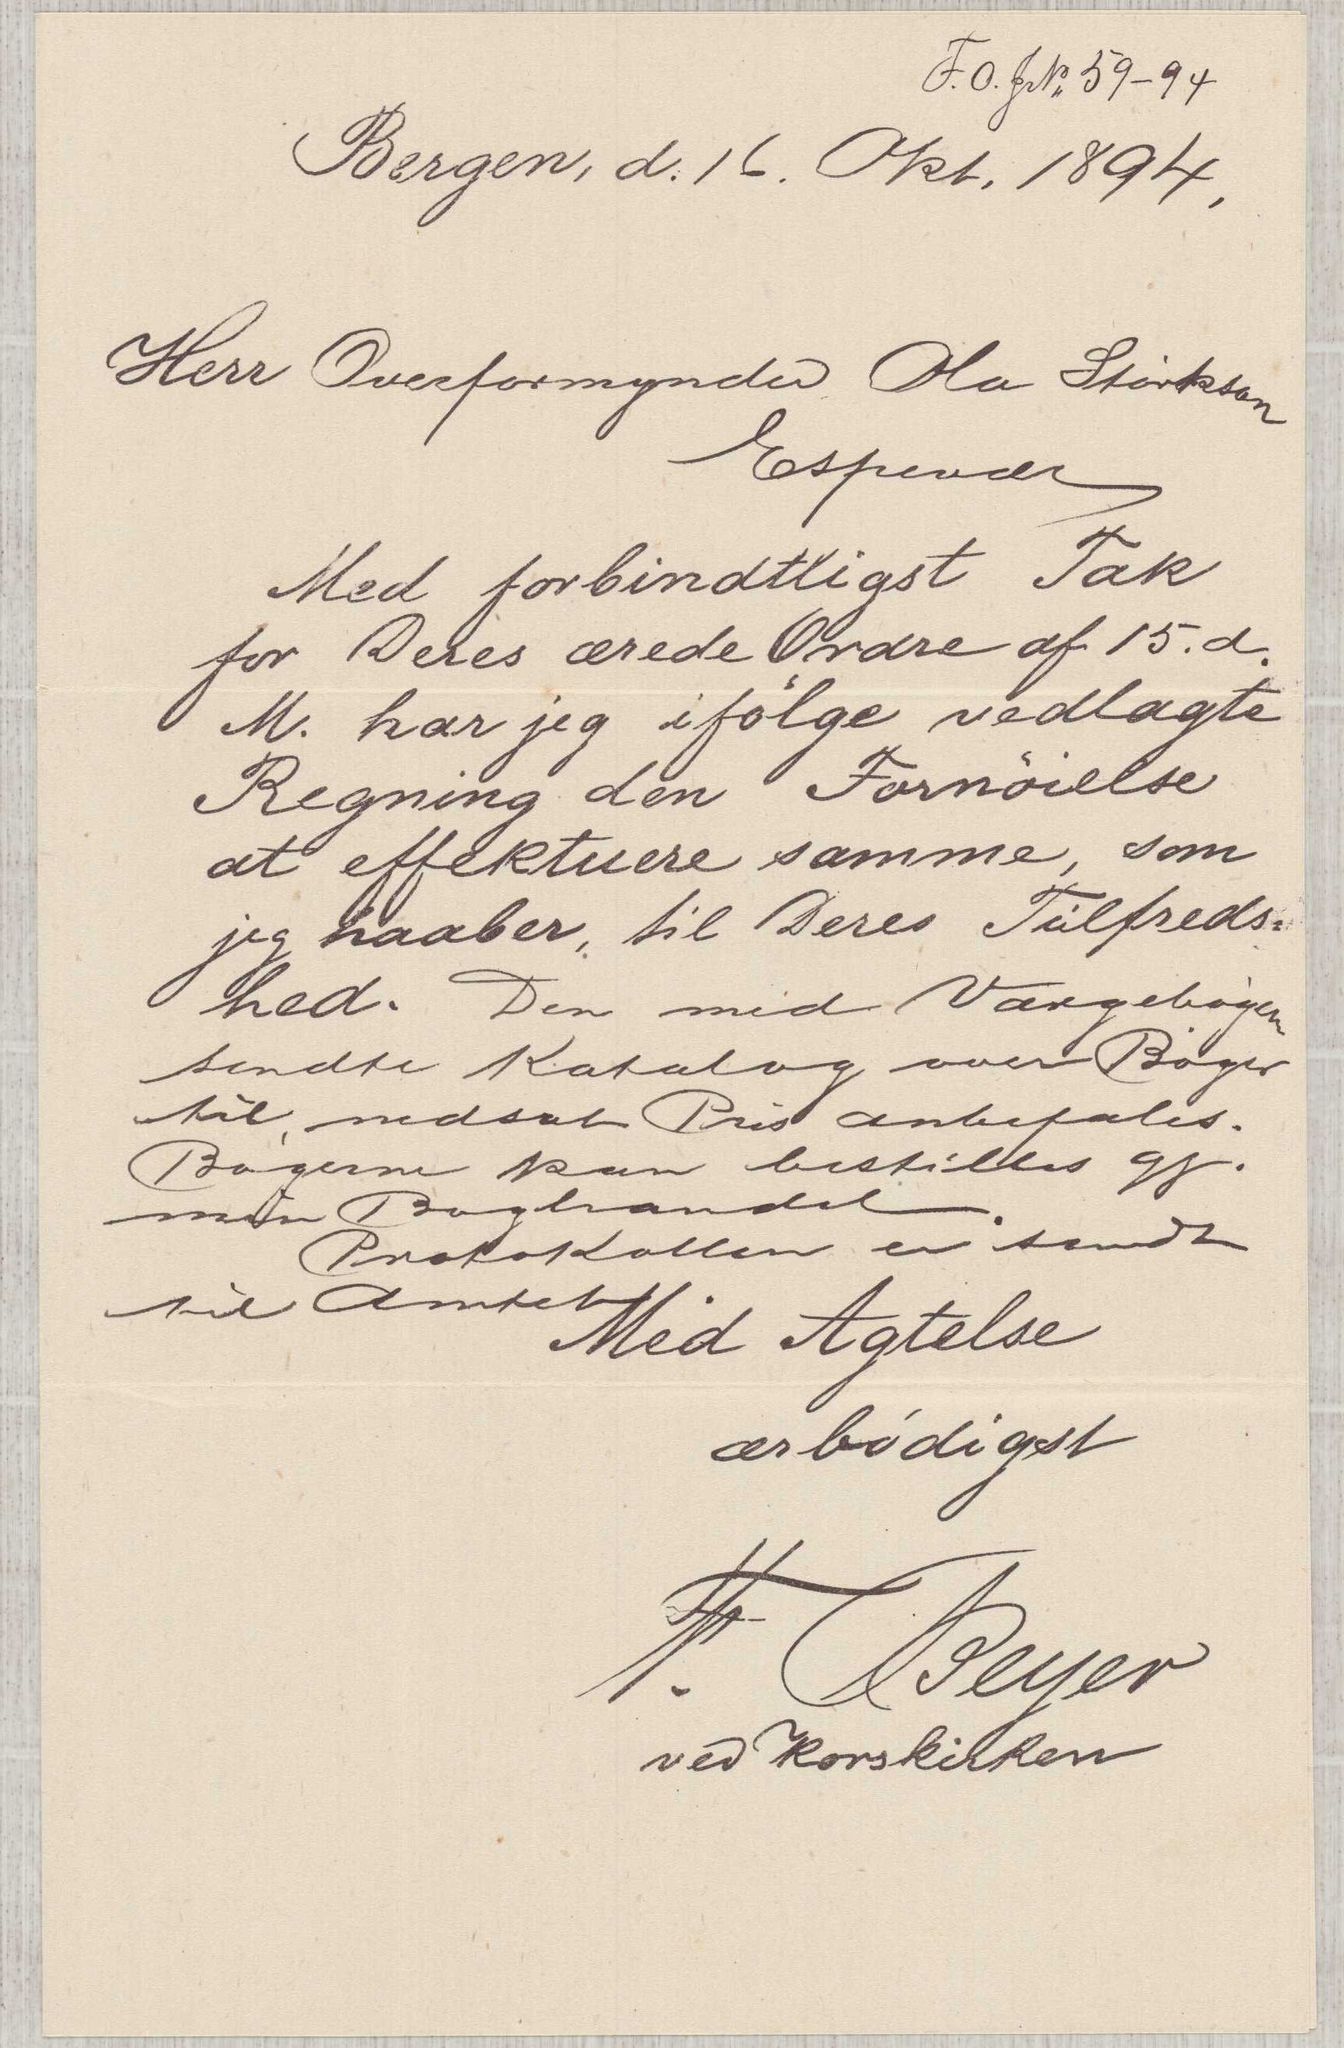 F.O. J.No. 59-94
Bergen, d. 16. Okt. 1894.
Herr Overformynder Ola Störkson
Espevær
Med forbindtligst Tak
for Deres ærede Ordre af 15. d.
M. har jeg ifölge vedlagte
Regning den Fornöielse
at effektuere samme, som
jeg haaber, til Deres Tilfreds-
hed. Den med Værgebögern
sendte Katalog over Böger
til nedsat Pris anbefales.
Bögerne kan bestilles gj.
min Boghandel.
Protokollen er sendt
til Amtet
Med Agtelse
ærbödigst
F. Beyer
ved Korskirken